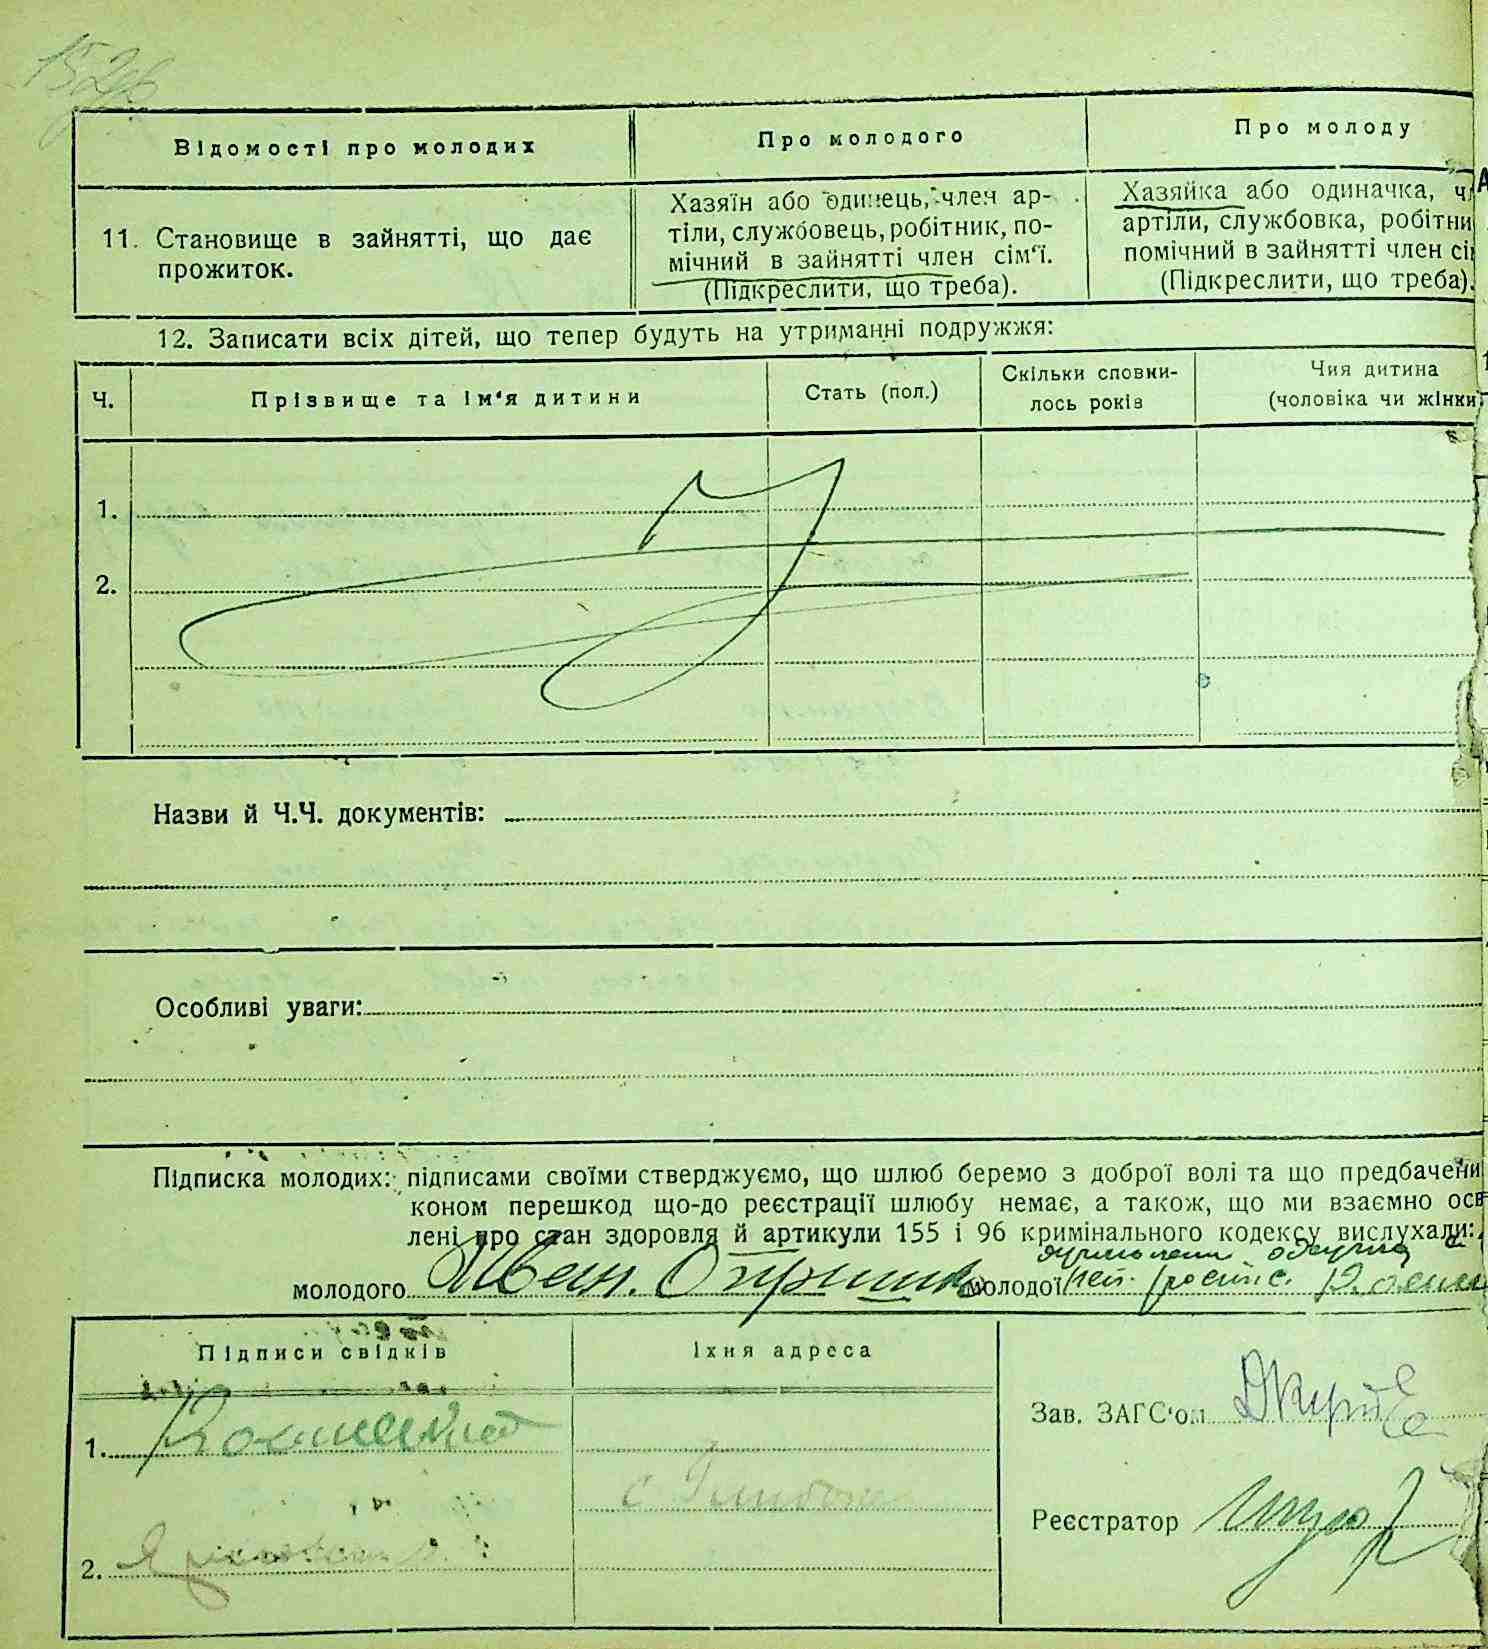 Відомості про молодих
Про молодого
Про молоду
11. Становище в зайнятті, що дає
прожиток.
Хазяїн або одинець, член ар-
тіли, службовець, робітник, по-
мічний в зайнятті член сім'ї.
(Підкреслити, що треба).
Хазяйка або одиначка, ч
артіли, службовка, робітни
помічний в зайнятті член сі
(Підкреслити, що треба).
12. Записати всіх дітей, що тепер будуть на утриманні подружжя:
Ч.
Прізвище та ім'я дитини
Стать (пол.)
Скільки сповни-
лось років
Чия дитина
(чоловіка чи жінки
1.
2.
Назви й Ч.Ч. документів:
Особливі уваги:
Підписка молодих: підписами своїми стверджуємо, що шлюб беремо з доброї волі та що предбачени
коном перешкод що-до реєстрації шлюбу немає, а також, що ми взаємно осв
лені про стан здоровля й артикули 155 і 96 кримінального кодексу вислухали:
молодого
молодої
Підписи свідків
Їхня адреса
1.
2.
с.
Зав. ЗАГС'ом
Реєстратор